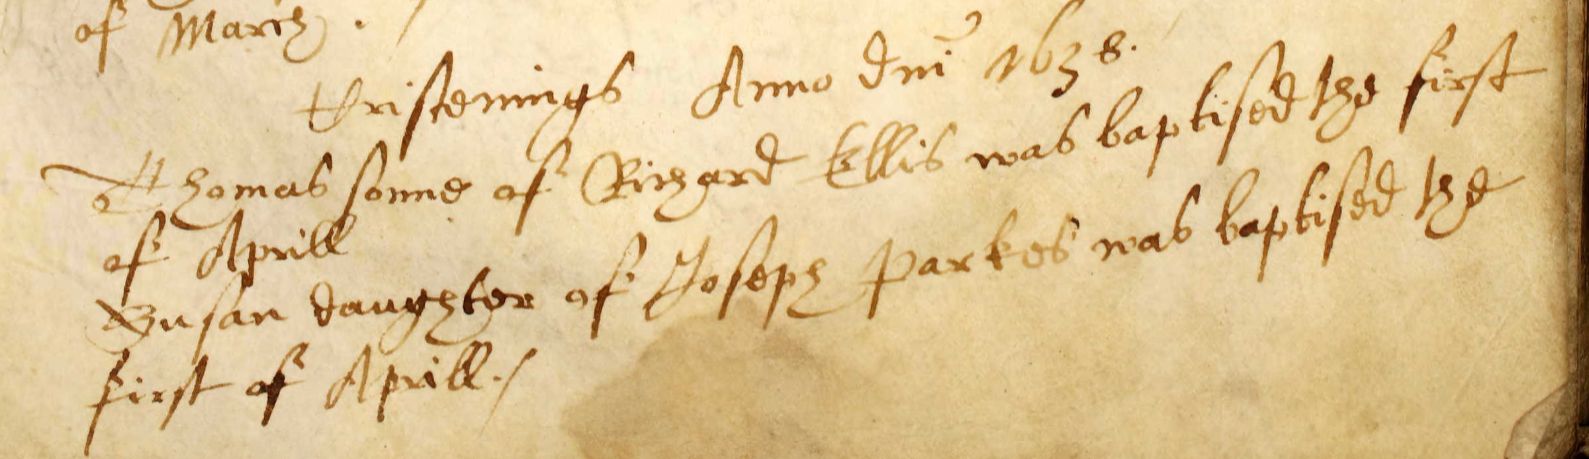 of March.
Cristenings Anno dni 1638.
Thomas sonne of Richard Ellis was baptised the first
of Aprill
Susan daughter of Joseph Parkes was baptised the
first of Aprill./